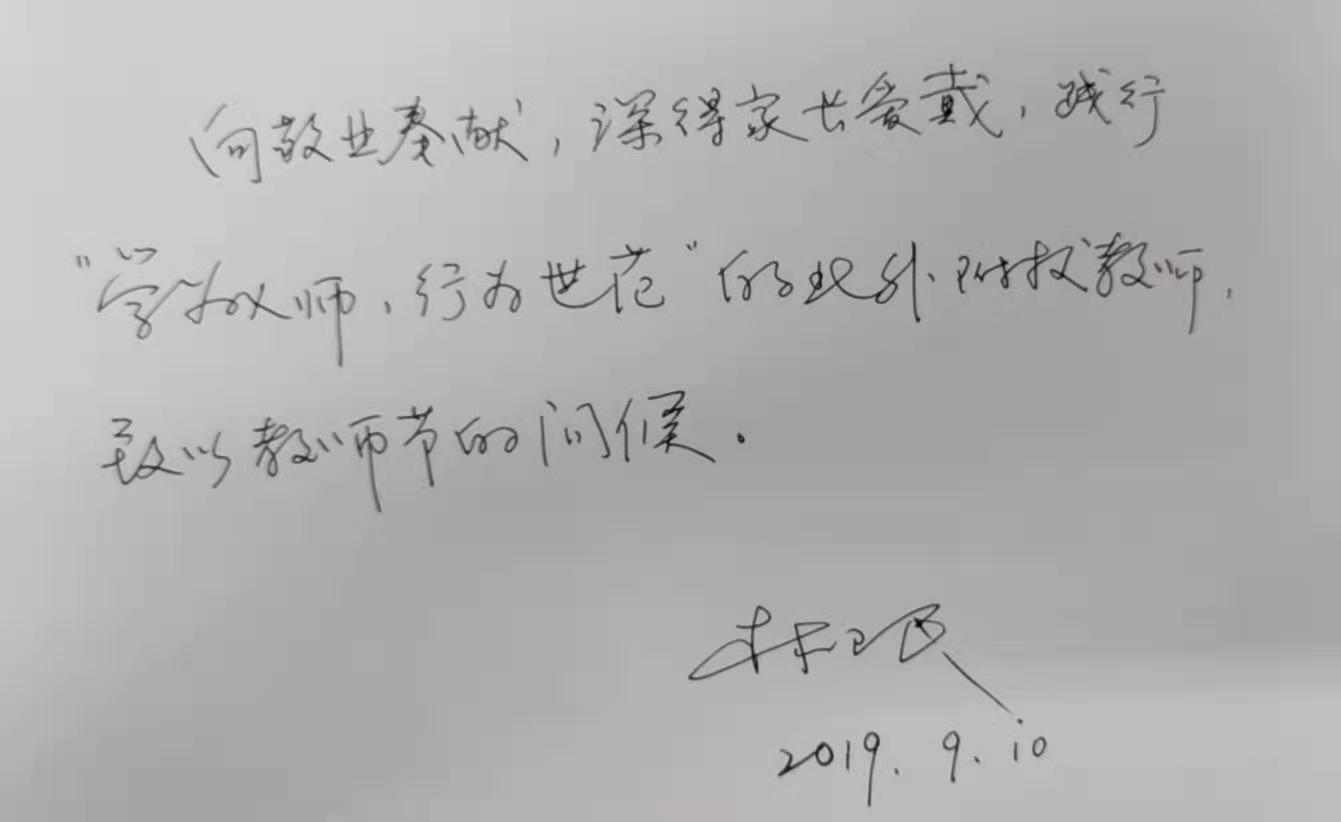 向敬业奉献，深得家长爱戴，践行
“学为人师，行为世范”的北外附校教师，
致以教师节的问候．
林卫民
2019．9．10